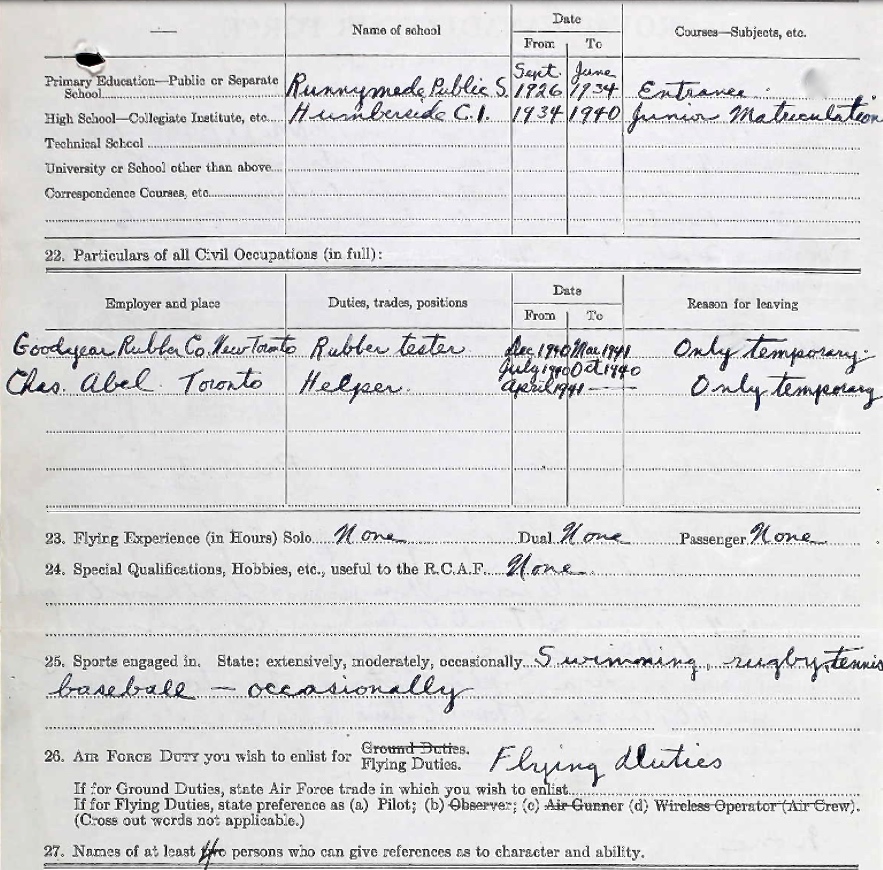 Date
— Name of school Courses—Subjects, etc.
From To
Sept. June
Primary Education—Public or Separate
School Runnymede Public S. 1926 1934 Entrance
High School—Collegiate Institute, etc. Humberside C.I. 1934 1940 Junior Matriculation
Technical School
University or School other than above
Correspondence Courses, etc.
22. Particulars of all Civil Occupations (in full):
Date
Employer and place Duties, trades, positions Reason for leaving
From To
Goodyear Rubber Co. New Toronto Rubber tester Dec. 1940 Mar. 1941 Only temporary.
July 1940 Oct. 1940
Chas. Abel. Toronto Helper. April 1941 — Only temporary
23. Flying Experience (in Hours) Solo None Dual None Passenger None
24. Special Qualifications, Hobbies, etc., useful to the R.C.A.F. None
25. Sports engaged in. State: extensively, moderately, occasionally Swimming, rugby, tennis
baseball — occasionally
26. AIR FORCE DUTY you wish to enlist for Ground Duties. Flying Duties
Flying Duties.
If for Ground Duties, state Air Force trade in which you wish to enlist
If for Flying Duties, state preference as (a) Pilot; (b) Observer; (c) Air Gunner (d) Wireless Operator (Air Crew).
(Cross out words not applicable.)
27. Names of at least persons who can give references as to character and ability.